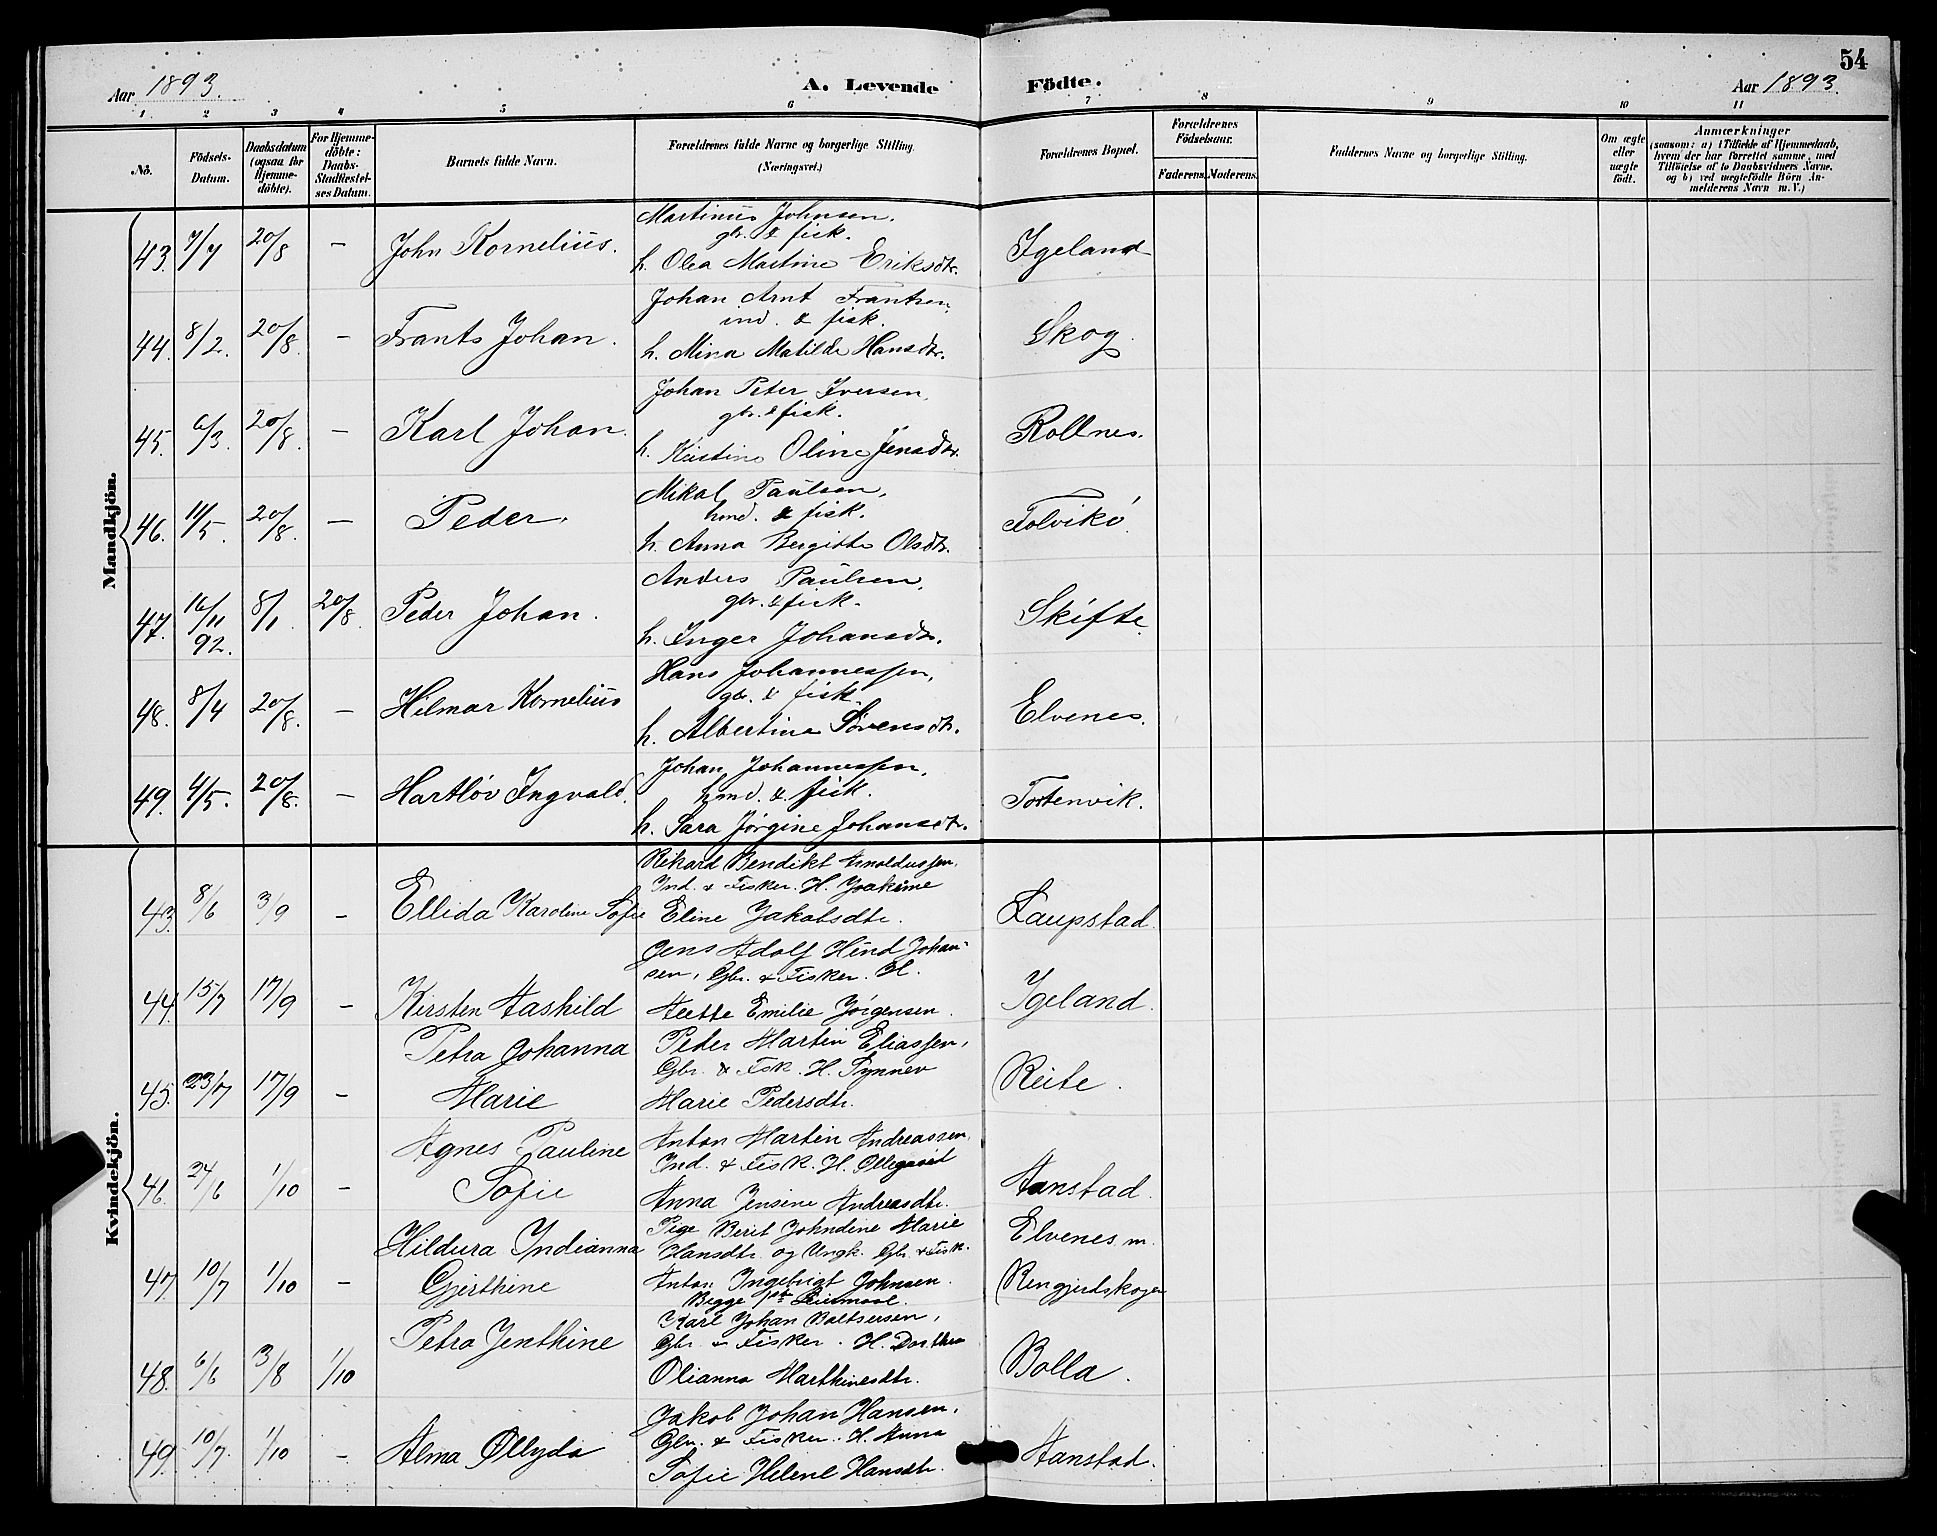 54
Aar 1893.
A. Levende Födte.
Aar 1893.
1 2 3 4 5 6 7 8 9 10 11
No.
Födsels-Datum.
Daabsdatum (ogsaa for Hjemme-döbte).
For Hjemme-döbte: Daabs-Stadfæstel-ses Datum.
Barnets fulde Navn.
Forældrenes fulde Navne og borgerlige Stilling. (Næringsvei.)
Forældrenes Bopæl.
Forældrenes Födselsaar.
Faderens. Moderens.
Faddernes Navne og borgerlige Stilling.
Om ægte eller uægte födt.
Anmærkninger
(saasom: a) i Tilfælde af Hjemmedaab,
hvem der har forrettet samme, med
Tilföielse af to Daabsvidners Navne,
og b) ved uægtefödte Börn An-
melderens Navn m. V.)
Mandkjön.
Martinus Johnsen,
gbr. & fisk.
43. 7/7 20/8 – John Kornelius. h. Olea Martine Eriksdtr. Igeland
Johan Arnt Frantsen,
ind. & fisk.
44. 8/2. 20/8. – Frants Johan. h. Mina Matilde Hansdtr. Skog.
Johan Peter Iversen,
gbr. & fisk.
45. 6/3. 20/8. – Karl Johan. h. Kristine Oline Jensdtr. Rollnes.
Mikal Paulsen,
hmd. & fisk.
46. 11/5. 20/8. – Peder. h. Anna Bergitte Olsdtr. Folvikö.
Anders Paulsen,
gbr. & fisk.
47. 16/11 92. 8/1. 20/8. Peder Johan. h. Inger Johansdtr. Skifte.
Hans Johannessen,
gbr. & fisk.
48. 8/4 20/8. – Hilmar Kornelius h. Albertine Sörensdtr. Elvenes.
Johan Johannessen,
hmd. & fisk.
49. 4/5. 20/8. – Hartlöv Ingvald. h. Sara Jörgine Johansdtr. Tortenvik.
Kvindekjön.
Rikard Bendikt Arnoldussen,
Ind. & Fisker. H. Joakime
43. 8/6 3/9 – Ellida Karoline Sofie Eline Jakobsdtr. Laupstad.
Jens Adolf Hind Johan-
sen, Gbr. & Fisker. H.
44. 15/7 17/9 – Kirsten Aashild Aette Emilie Jörgensen. Igeland.
Petra Johanna Peder Martin Eliassen,
Gbr. & Fsk. H. Synnev
45. 23/7 17/9 – Marie Marie Pedersdtr. Reite.
Agnes Pauline Anton Martin Andreassen,
Ind. & Fisk. H. Ollegaard
46. 24/6 1/10 – Sofie Anna Jensine Andreasdtr. Aanstad.
Pige Berit Johndine Marie Elvenes m.
Hildura Indianna Hansdtr. og Ungk. Gbr. & Fisk.
47. 10/7 1/10 – Gjerthine Anton Ingebrigt Johnsen. Rengjerdskogen
Begge 1ste Leiermaal.
Karl Johan Baltsersen,
Petra Jenthine Gbr. & Fisker. H. Dorthea
48. 6/6 3/8 1/10 Olianna Marthinesdtr. Bolla.
Jakob Johan Hansen,
Gbr. & Fisker. H. Anna
49. 10/7. 1/10 – Alma Øllyda Sofie Helene Hansdtr. Aanstad.